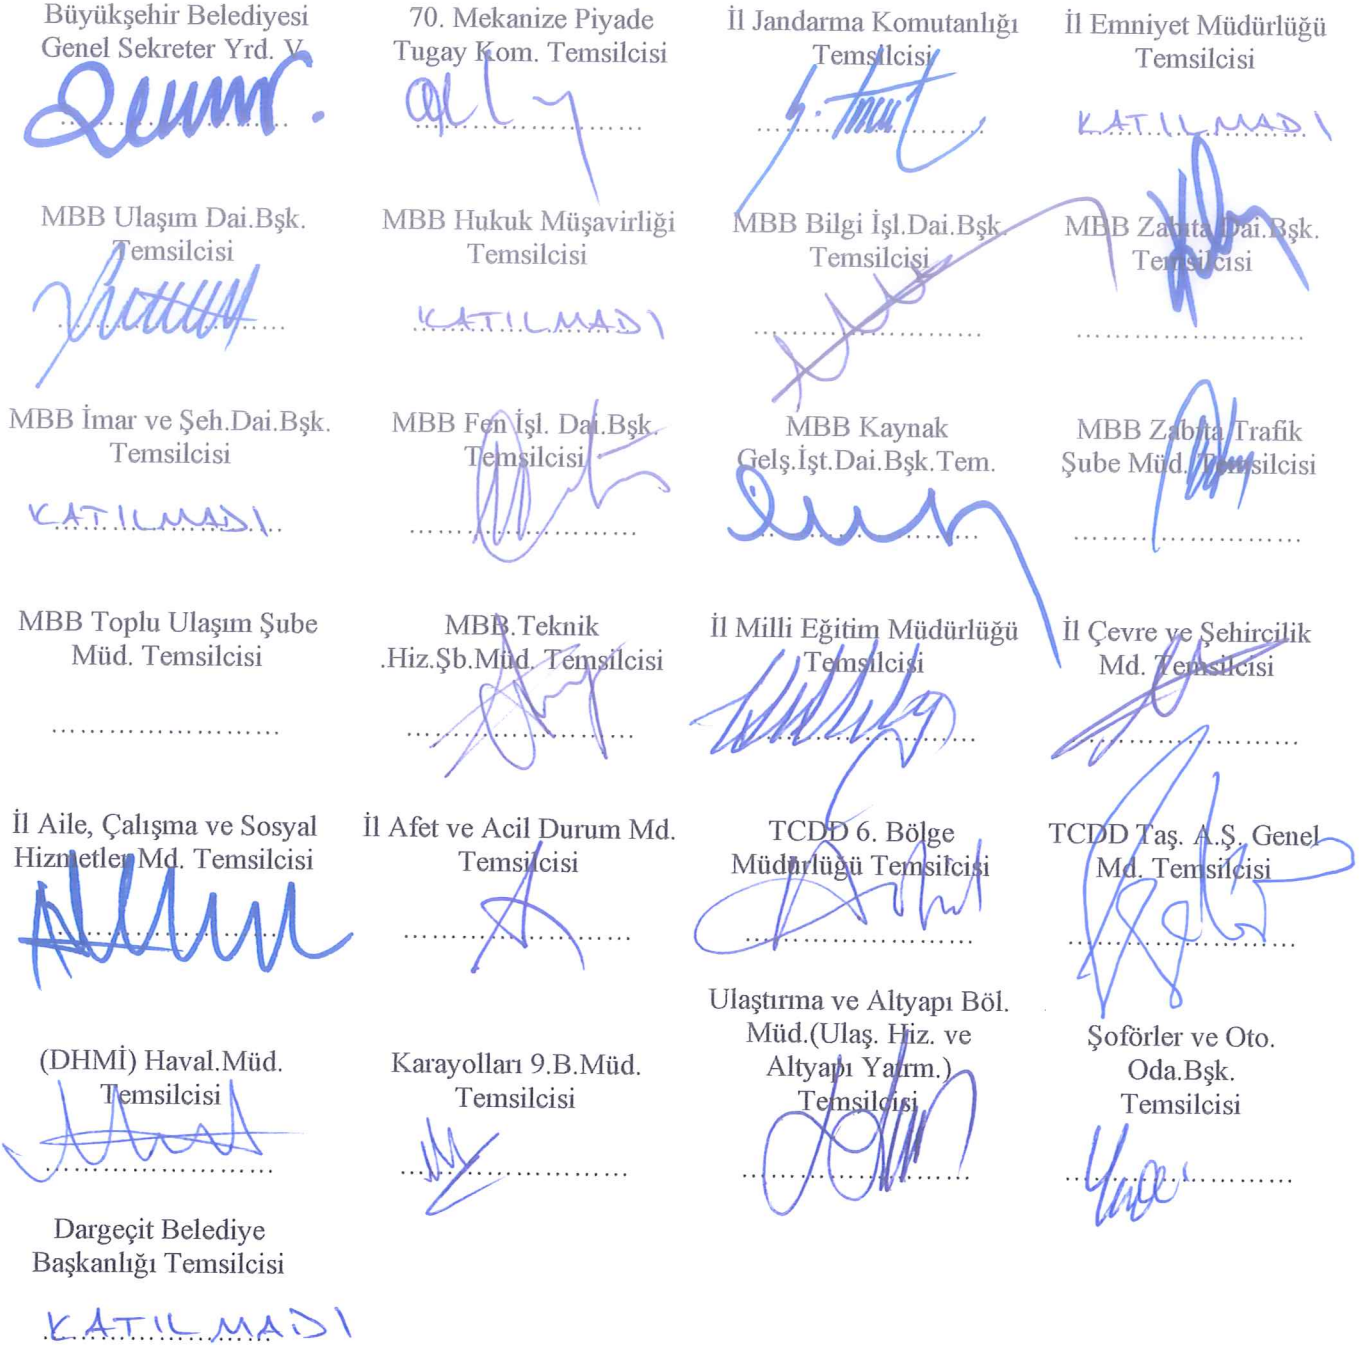 Büyükşehir Belediyesi
Genel Sekreter Yrd. V.
70. Mekanize Piyade
Tugay Kom. Temsilcisi
İl Jandarma Komutanlığı
Temsilcisi
İl Emniyet Müdürlüğü
Temsilcisi
KATILMADI
MBB Ulaşım Dai.Bşk.
Temsilcisi
MBB Hukuk Müşavirliği
Temsilcisi
KATILMADI
MBB Bilgi İşl.Dai.Bşk.
Temsilcisi
MBB Zabıta Dai.Bşk.
Temsilcisi
MBB İmar ve Şeh.Dai.Bşk.
Temsilcisi
KATILMADI
MBB Fen İşl. Dai.Bşk.
Temsilcisi
MBB Kaynak
Gelş.İşt.Dai.Bşk.Tem.
MBB Zabıta Trafik
Şube Müd. Temsilcisi
MBB Toplu Ulaşım Şube
Müd. Temsilcisi
MBB.Teknik
.Hiz.Şb.Müd. Temsilcisi
İl Milli Eğitim Müdürlüğü
Temsilcisi
İl Çevre ve Şehircilik
Md. Temsilcisi
İl Aile, Çalışma ve Sosyal
Hizmetler Md. Temsilcisi
İl Afet ve Acil Durum Md.
Temsilcisi
TCDD 6. Bölge
Müdürlüğü Temsilcisi
TCDD Taş. A.Ş. Genel
Md. Temsilcisi
(DHMİ) Haval.Müd.
Temsilcisi
Karayolları 9.B.Müd.
Temsilcisi
Ulaştırma ve Altyapı Böl.
Müd.(Ulaş. Hiz. ve
Altyapı Yatrm.)
Temsilcisi
Şoförler ve Oto.
Oda.Bşk.
Temsilcisi
Dargeçit Belediye
Başkanlığı Temsilcisi
KATILMADI